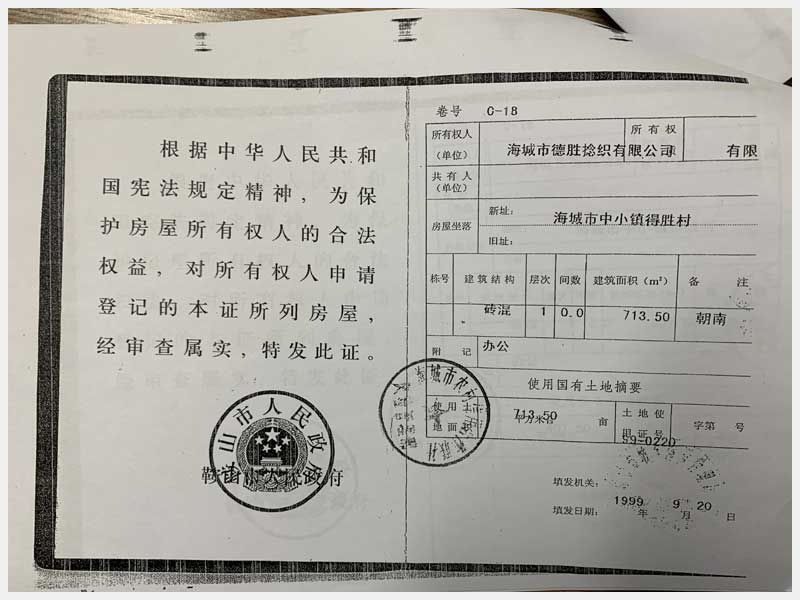 根据中华人民共和
国宪法规定精神，为保
护房屋所有权人的合法
权益，对所有权人申请
登记的本证所列房屋，
经审查属实，特发此证。
山市人民政府
鞍山市人民政府
卷号 C-18
所有权人
(单位)
海城市德胜捻织有限公司
所有权
有限
共有人
(单位)
房屋坐落
新址：
海城市中小镇得胜村
旧址：
栋号 建筑结构 层次 间数 建筑面积（m²） 备 注
砖混 1 0.0 713.50 朝南
附 记
办公
使用国有土地摘要
使用土
地面积
713.50
平方米合 亩
土地使
用证号
字第 号
59-0220
填发机关：
填发日期：
1999 年 9 月 20 日